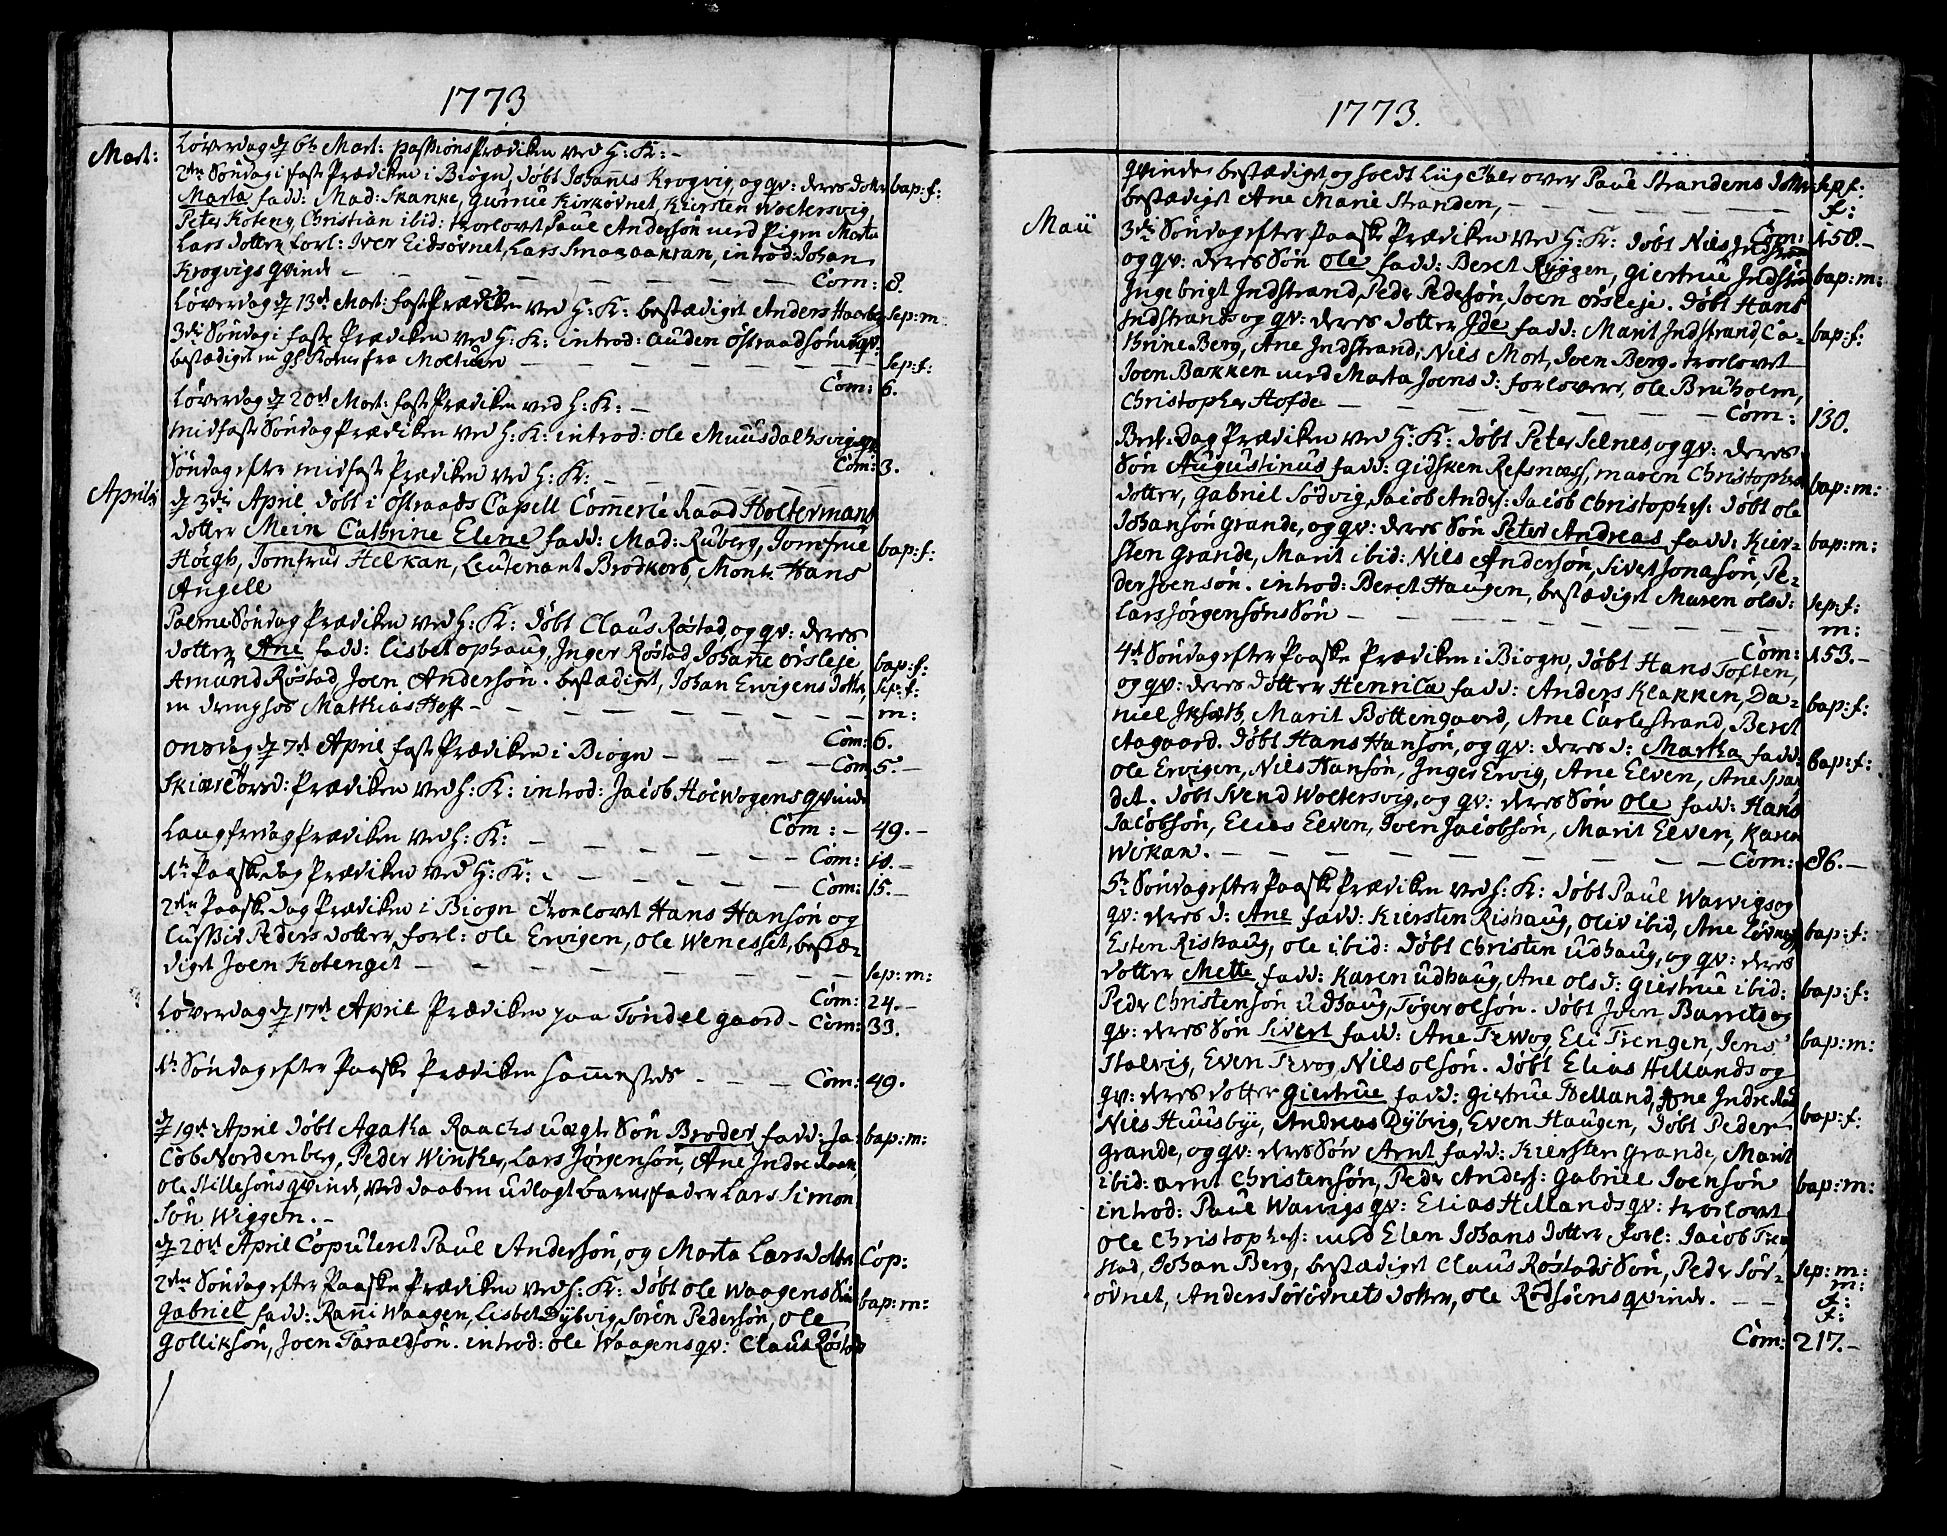 1773
Mart:
Løverdag d 6te Mart: passions Prædiken ved H: K: -
2den Søndag i faste Prædiken i Biogn, døbt Johannes Krogvig, og qv: deres dotter bap: f:
Marta fadd: Mad: Skanke, Gurrue Kirkøvnet, Kiersten Woltersvig
Peter Koteng, Christian ibid: trorlovet Paul Andersøn med Pigen Marta
Lars dotter forl: Iver Eidsøvnet, Lars Smaaaakran, introd: Johan
Krogvigs Qvinde - Com: 8.
Løverdag d 13de Mart: faste Prædiken ved H: K: bestædiget Anders Hoxeng sep: m
3die Søndag i faste Prædiken ved H: K: introd: Auden Østraadsøns qv:
bestædiget en gl: Kone fra Moltuen - sep: f:
Com: 6.
Løverdag d 20de Mart: faste Prædiken ved H: K: -
Midfaste Søndag Prædiken ved H: K: introd: Ole Muusdalhsvigs qv
Com: 3.
Søndag efter midfaste Prædiken ved H: K: -
Aprilis
d 3die April døbt i Østraads Capell Commercie Raad Holtermans
dotter Mein Cathrine Elene fadd: Mad: Ruberg, Jomfrue bap: f:
Høegh, Jomfrue Helkan, Leutenant Brodkorb, Monsr. Hans
Angell
Palme Søndag Prædiken ved H: K: døbt Claus Røstad, og qv: deres
dotter Ane fadd: Lisbet Ophaug, Inger Røstad Johanne Ørsleje bap: f:
Amund Røstad, Joen Andersøn. bestædiget, Johan Ervigens dotter, sep: f:
en dreng hos Matthias Hoff - m:
Com: 6.
Onsdag d 7de April faste Prædiken i Biogn - Com 5. -
Skiære torsd: Prædiken ved H: K: introd: Jacob Hoëwogens qvinde
Com: - 49. -
Langfredag Prædiken ved H: K: - Com: 10. -
1te Paaskedag Prædiken ved H: K: - Com: 15. -
2den Paaske dag Prædiken i Biogn trorlovet Hans Hansøn og
Lussie Peders dotter forl: Ole Ervigen, Ole Wenesset, bestæ-
diget Joen Kotenget - sep: m:
Com: 24. -
Løverdag d 17de April Prædiken paa Tøndel gaard - Com: 33.
1te Søndag efter Paaske Prædiken sammesteds - Com: 49.
d 19de April døbt Agatha Raachs uægte Søn Broder fadd: Ja- bap: m:
cob Nordenberg, Peder Winther, Lars Jørgensøn, Ane Indre Raak,
Ole Stillesøns qvinde, ved daaben udlagt barnefader Lars Simon
Søn Wiggen. -
d 20de April Copuleret Paul Andersøn, og Marta Lars dotter Cop:
2den Søndag efter Paaske Prædiken ved H: K: døbt Ole Waagens Søn
Gabriel fadd: Ranni Waagen, Lisbet Dybvig, Søren Pedersøn, Ole bap: m:
Golliksøn, Joen Taraldsøn. introd: Ole Waagens qv: Claus Røstads
1773.
qvinde bestædiget, og holdt Liig tale over Paul Strandens dotter sep: f:
bestædiget Ane Marie Stranden, - f:
Com: 158. -
Maii
3die Søndag efter Paaske Prædiken ved H: K: døbt Nils Indstrøn
og qv: deres Søn Ole fadd: Beret Ryggen, Giertrue Indstrøn bap: m:
Ingebrigt Indstrand, Peder Pedersøn, Joen Ørsleje. døbt Hans
Indstrands og qv: deres dotter Ide fadd: Marit Indstrand, Ca- bap: f:
thrine Berg, Ane Indstrand, Nils Mort, Joen Berg. trorlovet
Joen Bakken med Marta Joens d: forlovere, Ole Bruholm,
Christopher Hofde - Com: 130.
Bede-dag Prædiken ved H: K: døbt Peter Selnes, og qv: deres
Søn Augustinus fadd: Gidsken Refsnæss, maren Christophers bap: m:
dotter, Gabriel Sødvig, Jacob Anders: Jacob Christophers: døbt Ole
Johansøn Grande, og qv: deres Søn Peter Andreas fadd: Kier- bap: m:
sten Grande, Marit ibid: Nils Andersøn, Sivert Jonasøn, Pe-
der Joensøn. introd: Beret Haugen, bestædiget Maren Olsd: sep: f:
Lars Jørgensøns Søn - m:
Com: 153. -
4de Søndag efter Paaske Prædiken i Biogn, døbt Hans Toften,
og qv: deres dotter Henrica fadd: Anders Klakken, Da- bap: f:
niel Jksæth, Marit Bottengaard, Ane Carlestrand, Beret
Aagaard. døbt Hans Hansøn, og qv: deres d: Martha fadd: bap: f:
Ole Ervigen, Nils Hansøn, Inger Ervig, Ane Elven, Ane Spa-
det. døbt Svend Woltersvig, og qv: deres Søn Ole fadd: Hans
Jacobsøn, Elias Elven, Joen Jacobsøn, Marit Elven, Karen
Wikan. - Com: 86. -
5te Søndag efter Paaske Prædiken ved H: K: døbt Paul Warvigs og
qv: deres d: Ane fadd: Kiersten Rishaug, Oliv ibid, Ane Tøvnes, bap: f:
Esten Rishaug, Ole ibid: døbt Christen Udhaug, og qv: deres
dotter Mette fadd: Karen Udhaug, Ane Olsd: Giertrue ibid: bap: f:
Peder Christensøn Udhaug, Tøger Olsøn. døbt Joen Barrets og
qv: deres Søn Sivert fadd: Ane Tewog, Eli Trengen, Jens bap: m:
Stalvig, Even Tevog, Nils Olsøn. døbt Elias Hellands og
qv: deres dotter Giertrue fadd: Giertrue Helland, Ane Indre Raak bap: f:
Nils Huusbye, Andreas Dybvig, Even Haugen, døbt Peder
Grande, og qv: deres Søn Arnt fadd: Kiersten Grande, Marit
ibid: Arnt Christensøn, Peder Anders: Gabriel Joensøn bap: m:
introd: Paul Warvigs qv: Elias Hellands qv: trorlovet
Ole Christophers: med Elen Johans dotter forl: Jacob Tren
stad, Johan Berg, bestædiget Claus Røstads Søn, Peder Sør- sep: m:
øvnet, Anders Sørøvnets dotter, Ole Rødsøens qvinde. - m:
f:
f:
Com: 217. -